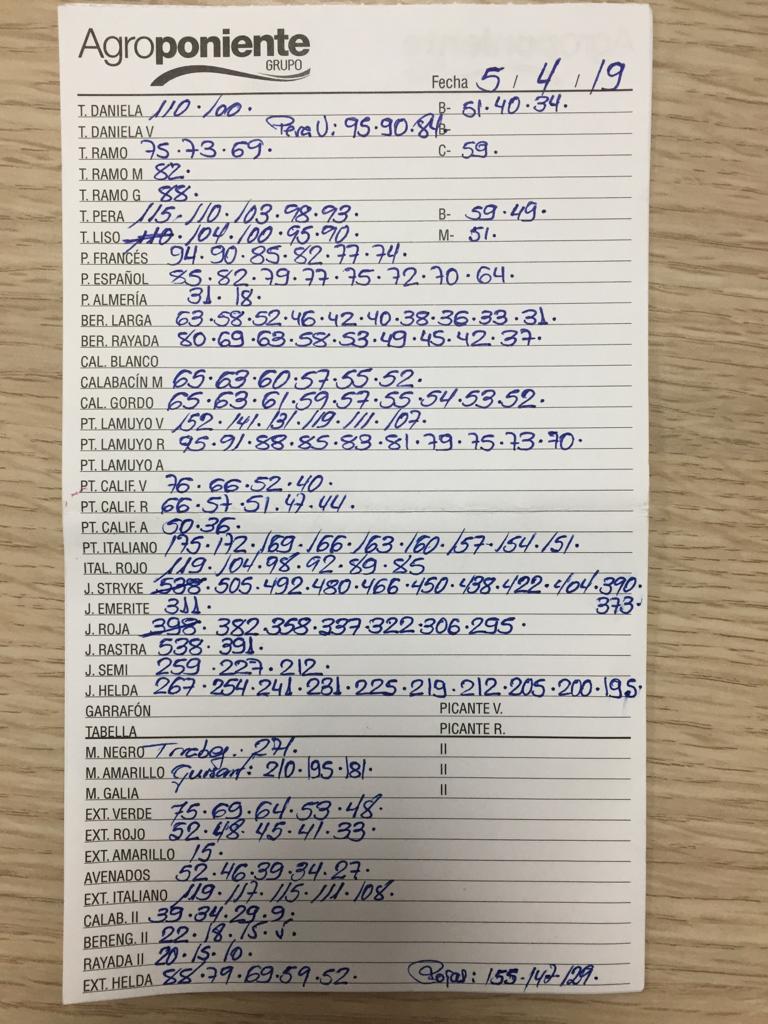 Agroponiente
GRUPO
Fecha 5 / 4 / 19
T. DANIELA 110·100. B- 51·40·34.
T. DANIELA V Pera V: 95·90·84 B-
T. RAMO 75·73·69. C- 59.
T. RAMO M 82.
T. RAMO G 88.
T. PERA 115·110·103·98·93. B- 59·49.
T. LISO 110·104·100·95·90. M- 51.
P. FRANCÉS 94·90·85·82·77·74.
P. ESPAÑOL 85·82·79·77·75·72·70·64.
P. ALMERÍA 31·18.
BER. LARGA 63·58·52·46·42·40·38·36·33·31.
BER. RAYADA 80·69·63·58·53·49·45·42·37.
CAL. BLANCO
CALABACÍN M 65·63·60·57·55·52.
CAL. GORDO 65·63·61·59·57·55·54·53·52.
PT. LAMUYO V 152·141·131·119·111·107.
PT. LAMUYO R 95·91·88·85·83·81·79·75·73·70.
PT. LAMUYO A
PT. CALIF. V 76·66·52·40.
PT. CALIF. R 66·57·51·47·44.
PT. CALIF. A 50·36.
PT. ITALIANO 175·172·169·166·163·160·157·154·151.
ITAL. ROJO 119·104·98·92·89·85
J. STRYKE 538·505·492·480·466·450·438·422·404·390.
J. EMERITE 311. 373.
J. ROJA 398·382·358·337·322·306·295.
J. RASTRA 538·391.
J. SEMI 259·227·212.
J. HELDA 267·254·241·231·225·219·212·205·200·195.
GARRAFÓN PICANTE V.
TABELLA PICANTE R.
M. NEGRO 271. II
M. AMARILLO 210·195·181. II
M. GALIA II
EXT. VERDE 75·69·64·53·48.
EXT. ROJO 52·48·45·41·33.
EXT. AMARILLO 15.
AVENADOS 52·46·39·34·27.
EXT. ITALIANO 119·117·115·111·108.
CALAB. II 39·34·29·9.
BERENG. II 22·18·15·5.
RAYADA II 20·15·10.
EXT. HELDA 88·79·69·59·52. Rojas: 155·147·129.